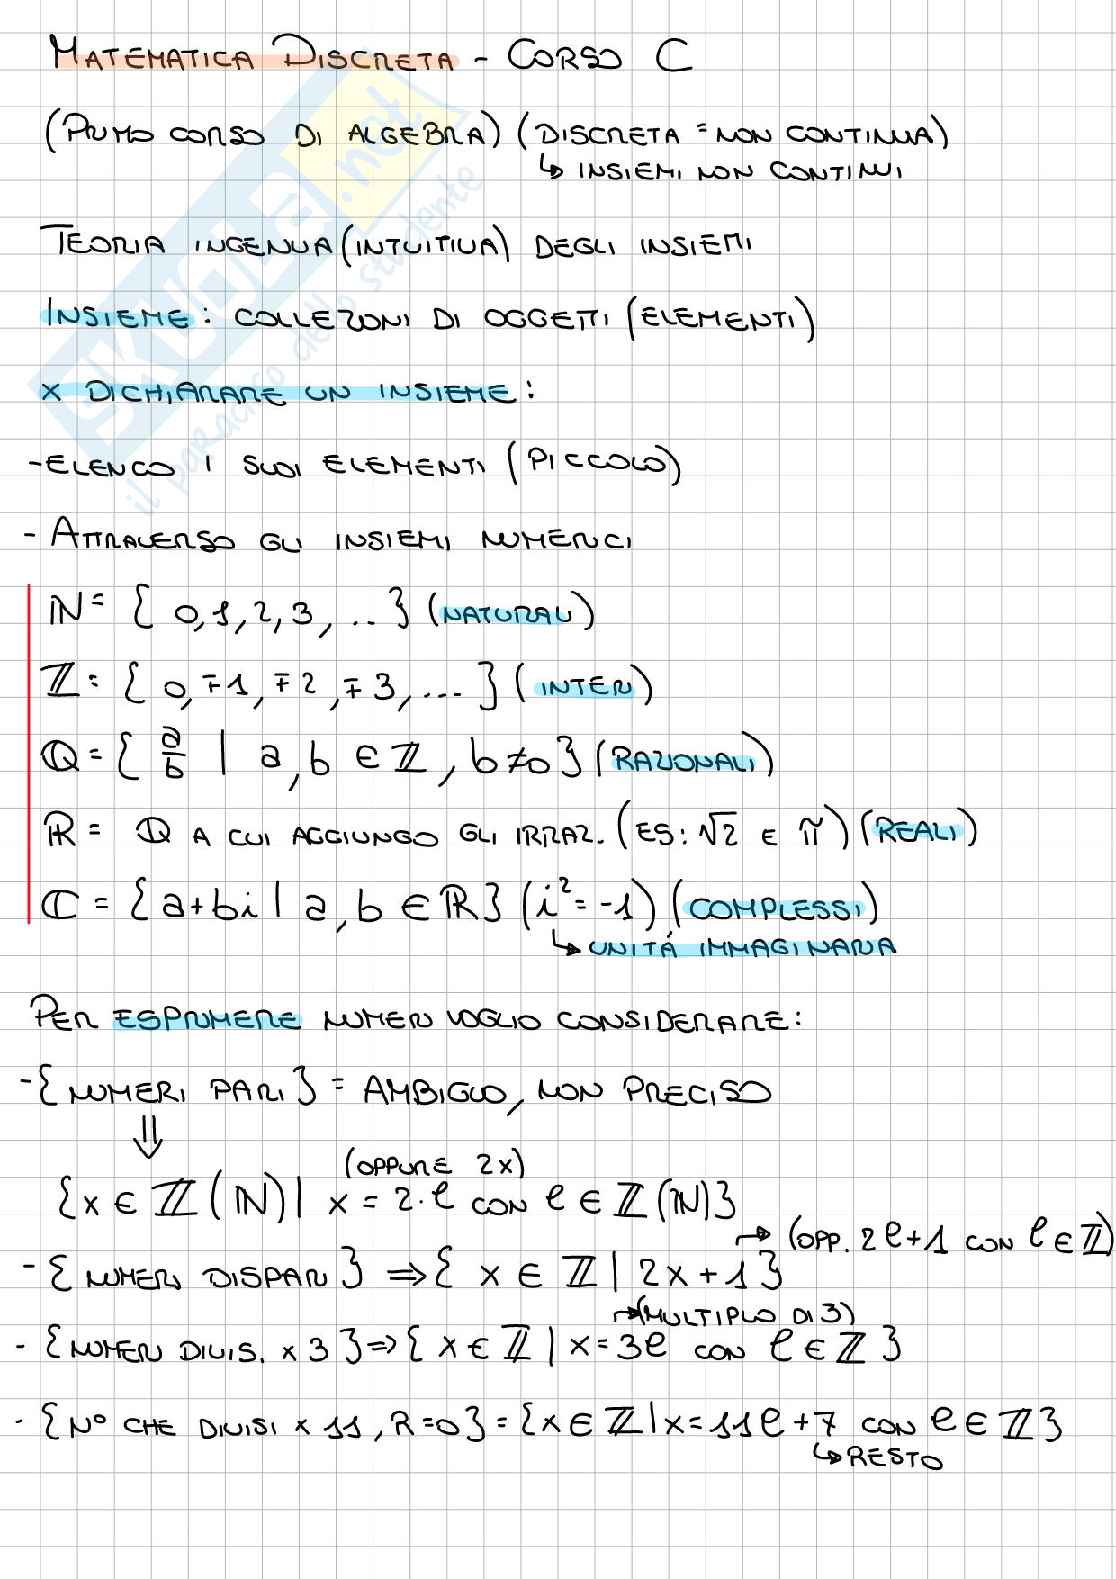 MATEMATICA DISCRETA - CORSO C
(PRIMO CORSO DI ALGEBRA) (DISCRETA = NON CONTINUA)
↳ INSIEMI NON CONTINUI
TEORIA INGENUA (INTUITIVA) DEGLI INSIEMI
INSIEME: COLLEZIONI DI OGGETTI (ELEMENTI)
x DICHIARARE UN INSIEME:
- ELENCO I SUOI ELEMENTI (PICCOLO)
- ATTRAVERSO GLI INSIEMI NUMERICI
ℕ = { 0, 1, 2, 3, .. } (NATURALI)
ℤ = { 0, ∓1, ∓2, ∓3, ... } (INTERI)
ℚ = { a/b | a, b ∈ ℤ, b ≠ 0 } (RAZIONALI)
ℝ = ℚ A CUI AGGIUNGO GLI IRRAZ. (ES: √2 E π) (REALI)
ℂ = { a + bi | a, b ∈ ℝ } (i² = -1) (COMPLESSI)
↳ UNITÁ IMMAGINARIA
PER ESPRIMERE NUMERI VOGLIO CONSIDERARE:
- { NUMERI PARI } = AMBIGUO, NON PRECISO
⇓
(OPPURE 2x)
{ x ∈ ℤ (ℕ) | x = 2·ℓ CON ℓ ∈ ℤ (ℕ) }
→ (OPP. 2ℓ+1 CON ℓ ∈ ℤ)
- { NUMERI DISPARI } ⇒ { x ∈ ℤ | 2x + 1 }
→ (MULTIPLO DI 3)
- { NUMERI DIVIS. x 3 } ⇒ { x ∈ ℤ | x = 3ℓ CON ℓ ∈ ℤ }
- { N° CHE DIVISI x 11, R = 0 } = { x ∈ ℤ | x = 11ℓ + 7 CON ℓ ∈ ℤ }
↳ RESTO
SKUOLA.net
il paradiso dello studente